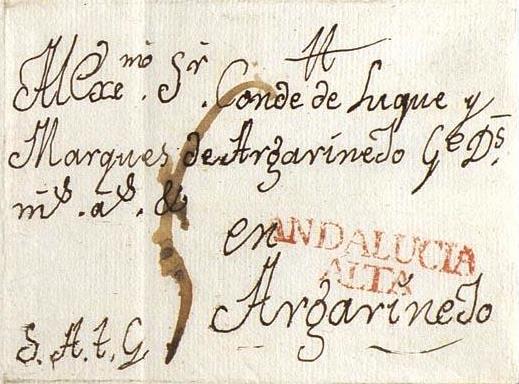 Al Exc.mo Sr. Conde de Luque y
Marques de Argarinejo Ge Ds.
ms. as. &
en
ANDALUCIA
ALTA
Argarinejo
S. A. t. G